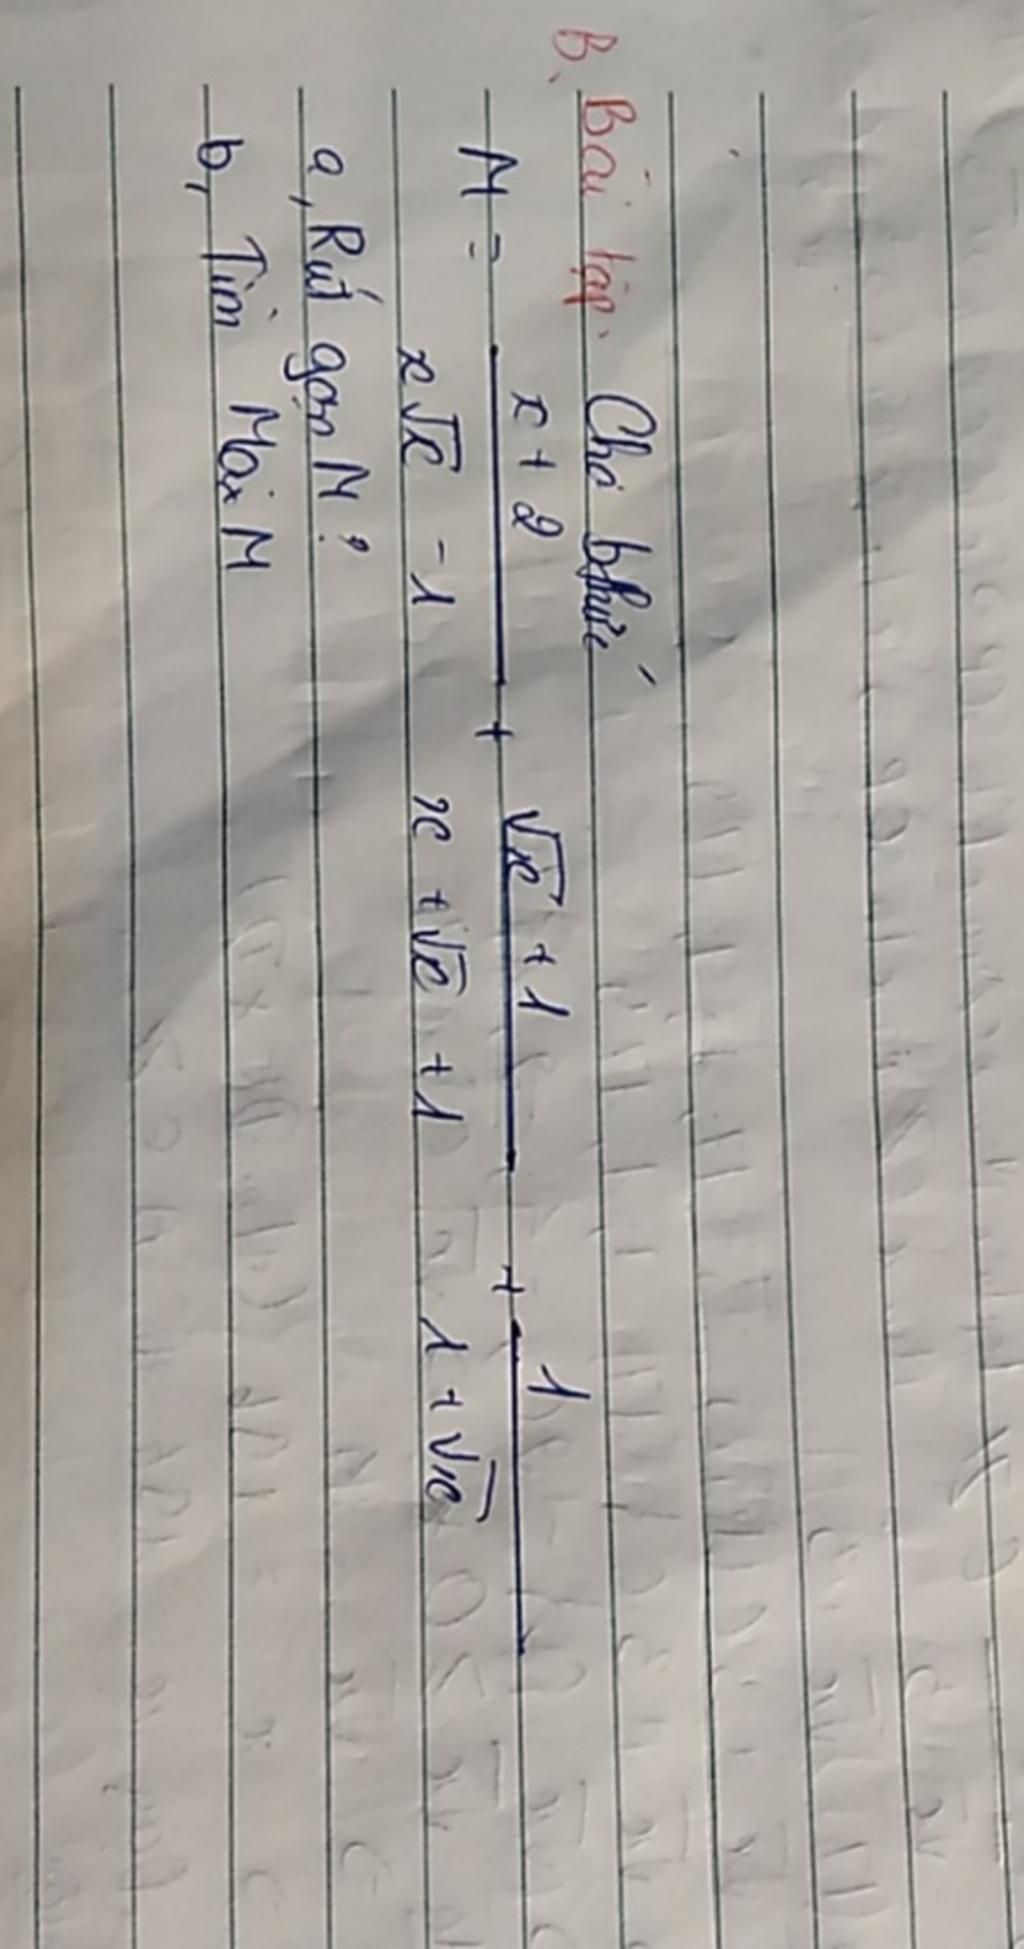 B, Bài tập. Cho bthức
M = \frac{x + 2}{x\sqrt{x} - 1} + \frac{\sqrt{x} + 1}{x + \sqrt{x} + 1} + \frac{1}{1 + \sqrt{x}}
a, Rút gọn M?
b, Tìm Max M